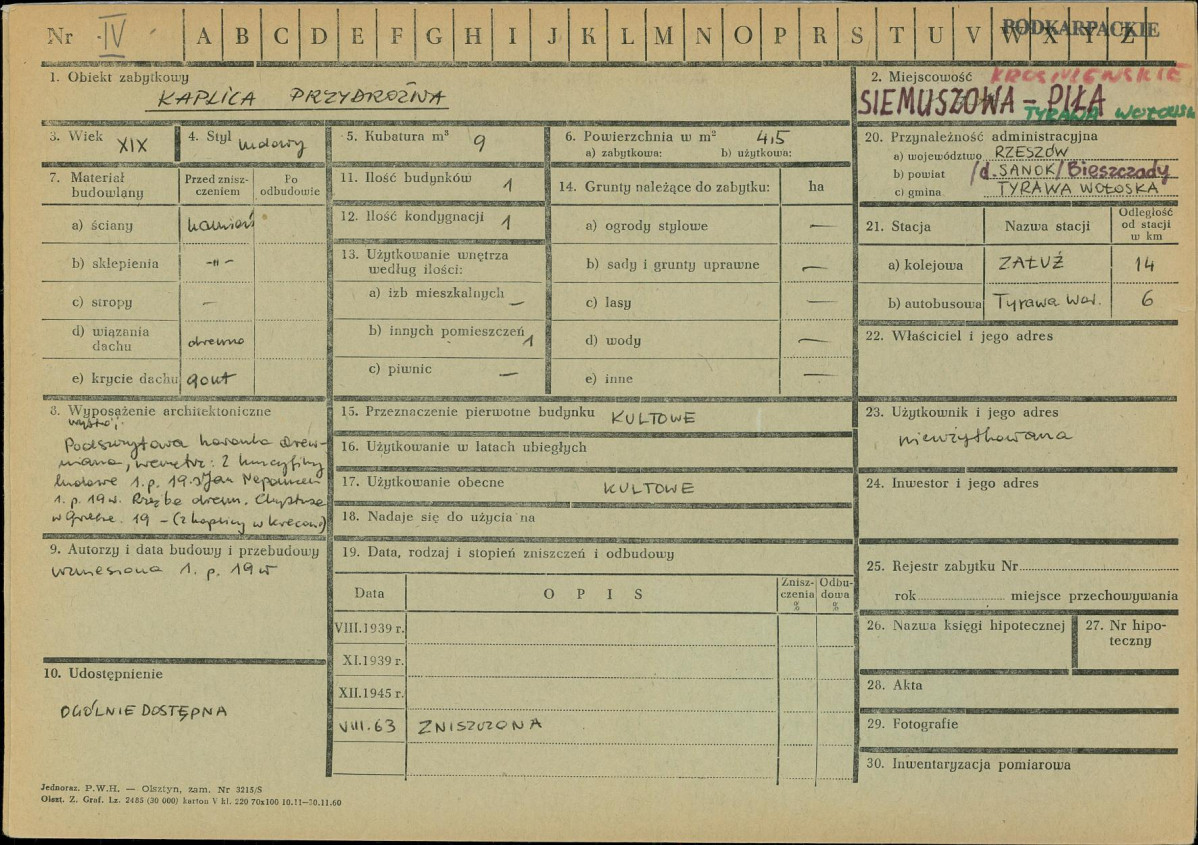 Nr IV A B C D E F G H I J K L M N O P R S T U V W X Y Z
PODKARPACKIE
1. Obiekt zabytkowy
KAPLICA PRZYDROŻNA
2. Miejscowość KROŚNIEŃSKIE
SIEMUSZOWA – PIŁA
TYRAWA WOŁOSKA
3. Wiek XIX
4. Styl ludowy
5. Kubatura m³ 9
6. Powierzchnia w m² 4,5
a) zabytkowa: b) użytkowa:
7. Materiał budowlany
Przed zniszczeniem
Po odbudowie
a) ściany kamień
b) sklepienia -"-
c) stropy –
d) wiązania dachu drewno
e) krycie dachu gont
8. Wyposażenie architektoniczne
Podeszytowa drewniana, wewnątrz: 2 krucyfiksy
ludowe 1. p. 19. Jan Nepomucen
1. p. 19 w. Rzeźba drewn. Chrystus
w Grobie. 19 – (z kaplicy w
9. Autorzy i data budowy i przebudowy
wzniesiona 1. p. 19 w
10. Udostępnienie
OGÓLNIE DOSTĘPNA
11. Ilość budynków 1
12. Ilość kondygnacji 1
13. Użytkowanie wnętrza według ilości:
a) izb mieszkalnych –
b) innych pomieszczeń 1
c) piwnic –
14. Grunty należące do zabytku: ha
a) ogrody stylowe –
b) sady i grunty uprawne –
c) lasy –
d) wody –
e) inne –
15. Przeznaczenie pierwotne budynku KULTOWE
16. Użytkowanie w latach ubiegłych
17. Użytkowanie obecne KULTOWE
18. Nadaje się do użycia na
19. Data, rodzaj i stopień zniszczeń i odbudowy
Data OPIS Zniszczenia % Odbudowa %
VIII.1939 r.
XI.1939 r.
XII.1945 r.
VIII.63 ZNISZCZONA
20. Przynależność administracyjna
a) województwo RZESZÓW
b) powiat /d. SANOK/Bieszczady
c) gmina TYRAWA WOŁOSKA
21. Stacja Nazwa stacji Odległość od stacji w km
a) kolejowa ZAŁUŻ 14
b) autobusowa Tyrawa Woł. 6
22. Właściciel i jego adres
23. Użytkownik i jego adres
nieużytkowana
24. Inwestor i jego adres
25. Rejestr zabytku Nr
rok miejsce przechowywania
26. Nazwa księgi hipotecznej
27. Nr hipoteczny
28. Akta
29. Fotografie
30. Inwentaryzacja pomiarowa
Jednoraz. P.W.H. — Olsztyn, zam. Nr 3215/S
Olszt. Z. Graf. Lz. 2485 (30 000) karton V kl. 220 70x100 10.11—30.11.60